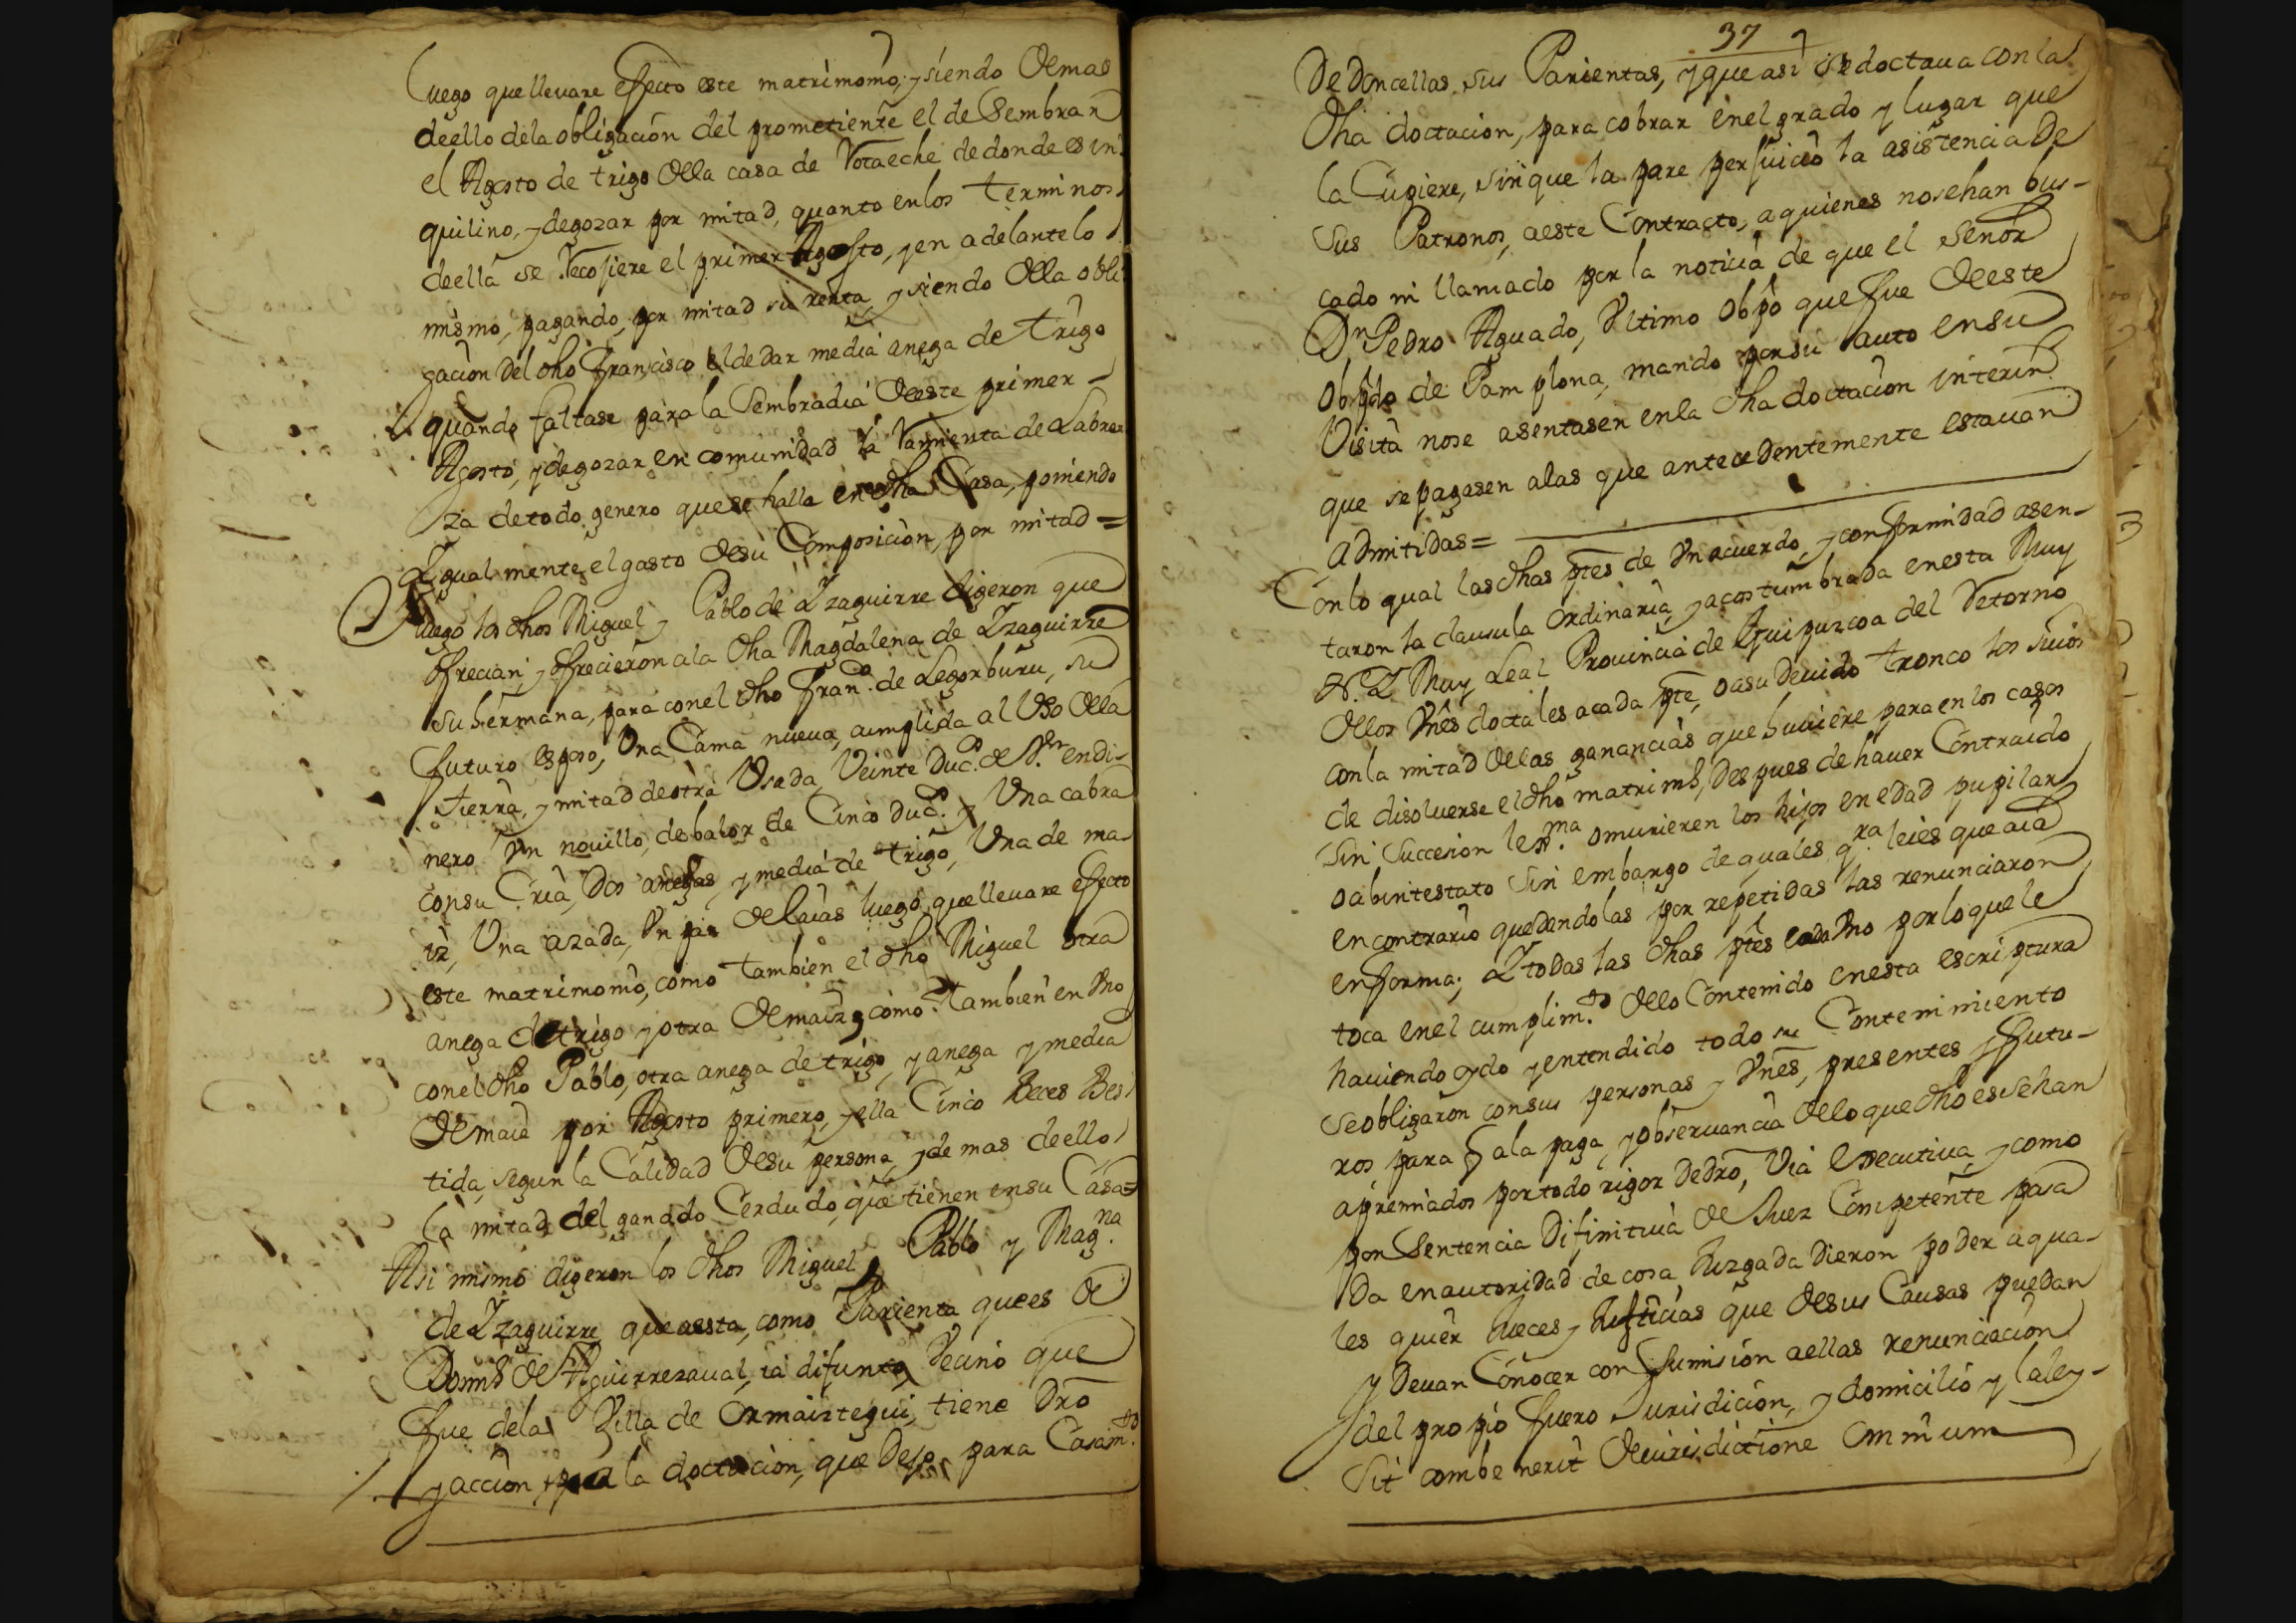 luego que llevare effecto este matrimonio, y siendo demas
deello dela obligación del prometiente el de Sembrar
el Agosto de trigo della casa de Votaeche dedonde es in
quilino, y degozar por mitad, quanto enlos terminos
deella se recojiere el primer Agosto, y en adelante lo
mismo, pagando por mitad su renta, y siendo della obli
gación del dho Francisco el de Dar media anega de trigo
quando faltase para la Sembradia deeste primer
Agosto, y degozar en comunidad la Varrienta de Labran
za detodo genero que se halla en dha Casa, poniendo
Igualmente el gasto desu Composición, por mitad =
Luego los dhos Miguel, y Pablo de Yzaguirre digeron que
ofrecian, y ofrecieron ala dha Magdalena de Yzaguirre
su hermana, para con el dho Fran.co de Legorburu, su
futuro esposo, Una Cama nueva, cumplida al Uso della
tierra, y mitad deotra Usada, Veinte Duc.s de V.on endi-
nero Un novillo, debalor de Cinco Duc.s y Una cabra
consu Cria, Dos anegas, y media de trigo, Una de ma-
iz, Una azada, Un par de laias luego que llevare effecto
este matrimonio, como tambien el dho Miguel otra
anega detrigo y otra demaiz, como tambien en Uno
conel dho Pablo, otra anega de trigo, y anega y media
demaiz por Agosto primero, y ella Cinco Veces Ves-
tida, segun la Calidad desu persona, y de mas deello
la mitad del ganado Cerdudo, que tienen ensu Casa=
Asi mismo digeron los dhos Miguel, Pablo y Mag.na
de Yzaguirre, que aesta, como Parienta que es de
Dom.o de Aguirrezaual, ia difunto, Vecino que
fue dela Villa de Ormaiztegui, tiene Dro
y acción, para la doctación, que Dejo para Casam.to
37
De Doncellas sus Parientas, y que asi se doctaua con la
dha doctacion, para cobrar enel grado y lugar que
la Cupiere, sin que la pare perjuicio la asistencia De
sus Patronos, aeste Contracto, aquienes nosehan bus-
cado ni llamado por la noticia de que el Señor
Dn Pedro Aguado, Ultimo Obpo que fue deeste
Obpdo de Pamplona, mando por su auto ensu
Visita nose asentasen enla dha doctacion interin
que se pagasen alas que antecedentemente estauan
admitidas=
Con lo qual las dhas ptes de Un acuerdo, y conformidad asen-
taron la clausula Ordinaria, y acostumbrada enesta Muy
N. Y Muy Leal Prouincia de Guipuzcoa del Retorno
dellos Vnes doctales acada pte, o asu Deuido tronco los suios
con la mitad dellas ganancias que huuiere para en los casos
de disoluerse el dho matrimo, Despues de hauer Contraido
Sin Succesion lex.ma o murieren los hijos en edad pupilar
o abintestato Sin embargo de quales q.ra leies que aia
encontrario queDendolas por repetidas las renunciaron
enforma; Y todas las dhas ptes cada Uno por lo que le
toca enel cumplim.to dello Contenido enesta escriptura
hauiendo oydo y entendido todo su Contenimiento
se obligaron consus personas y Vnes, presentes y futu-
ros para ala paga, y observancia dello que dho es se han
apremiados por todo rigor De Dro, Via Executiua, y como
por Sentencia Difinitiua de Juez Competente pasa
Da en autoridad de cosa Juzgada Dieron poder aqua-
les quier Jueces, y Justicias que desus Causas puedan
y Deuan Conocer con Sumision aellas renunciacion
del propio fuero Jurisdicion, y domicilio y la ley-
Sit combenerit de iurisdictione Omnium